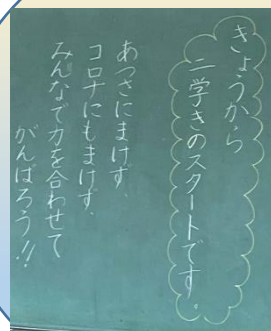 きょうから
二学きのスタートです。
あつさにまけず、
コロナにもまけず、
みんなで力を合わせて
がんばろう!!